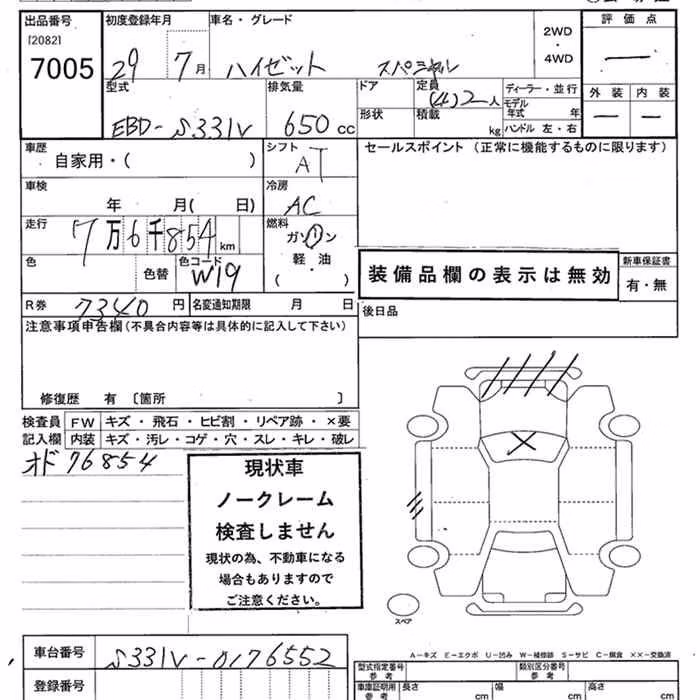 出品番号 初度登録年月 車名・グレード 2WD ・ 4WD 評価点
[2082]
7005 29 7月 ハイゼット スペシャル —
型式 排気量 ドア 定員 (4)2人 ディーラー・並行 外装 内装
EBD-S331V 650cc 形状 積載 kg モデル年式 年 — —
ハンドル 左・右
車歴 シフト セールスポイント(正常に機能するものに限ります)
自家用・( ) AT
車検 冷房
年 月( 日) AC
走行 燃料
7万6千854km ガソリン
軽油
・
( )
色 色替 色コード
W19
装備品欄の表示は無効 新車保証書
有・無
R券 7340円 名変通知期限 月 日 後日品
注意事項申告欄(不具合内容等は具体的に記入して下さい)
修復歴 有 〔箇所 〕
検査員 FW キズ・飛石・ヒビ割・リペア跡・×要
記入欄 内装 キズ・汚レ・コゲ・穴・スレ・キレ・破レ
オド 76854
現状車
ノークレーム
検査しません
現状の為、不動車になる
場合もありますので
ご注意ください。
スペア
A-キズ E-エクボ U-凹み W-補修跡 S-サビ C-腐食 ××-交換済
車台番号 S331V-0176552
登録番号
型式指定番号 参考 類別区分番号 参考
車庫証明用 参考 長さ cm 幅 cm 高さ cm